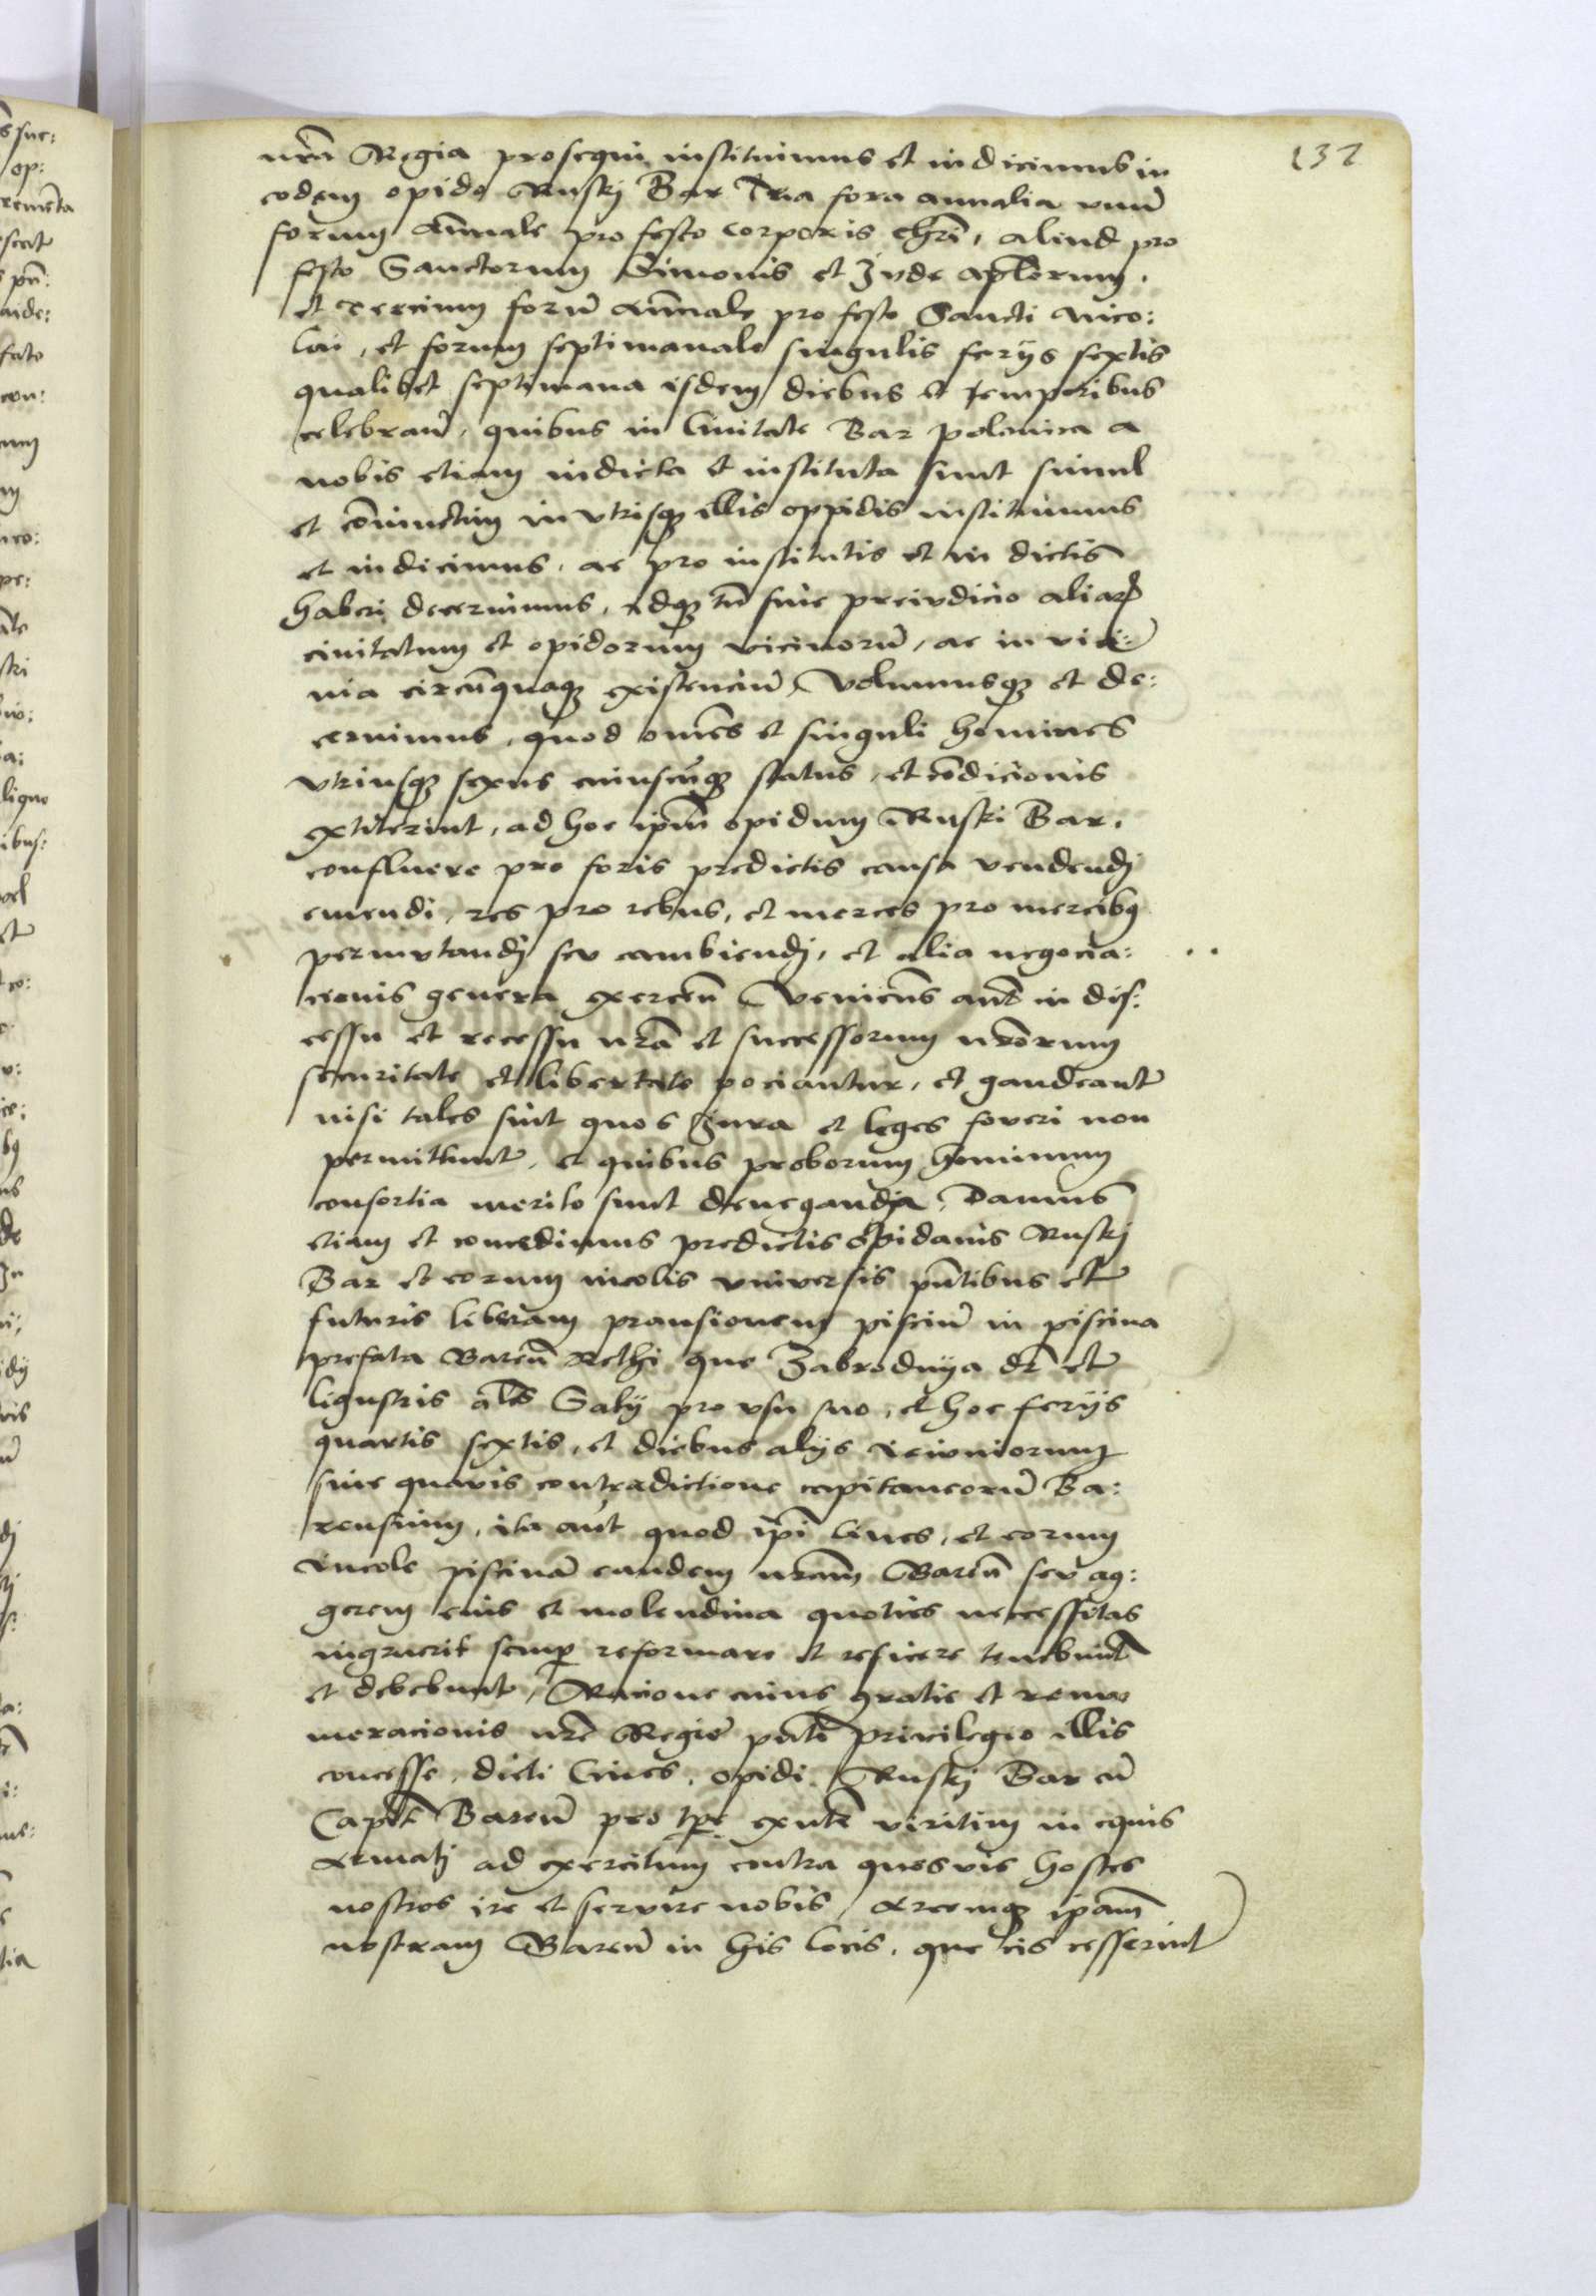 132
nrã Regia prosequi instituimus et indicimus in
eodem opido Ruskj Bar Tria fora annalia vnũ
forum Annale pro festo corporis chrĩ, aliud pro
festo Sanctorum Simonis et Jude aplorum.
et tercium forũ Annale pro festo Sancti Nico:
lai, et forum septimanale singulis ferijs sextis
qualibet septimana isdem diebus et temporibus
celebrañ, quibus in Ciuitate Bar polonica a
nobis etiam indicta et instituta sunt simul
et coniunctim in vtrisqʒ illis oppidis instituimus
et indicimus, ac pro institutis et in dictis
haberi decernimus, idqʒ tñ sine preiudicio aliarũ
ciuitatum et opidorum vicinorũ, ac in vici:
nia circũquaqʒ existenciũ, Volumusqʒ et de:
cernimus, quod omes et singuli homines
vtriusqʒ sexus cuiuscũqʒ status, et cõdicionis
extiterint, ad hoc ipm opidum Ruski Bar,
confluere pro foris predictis causa vendendj
emendi, res pro rebus, et merces pro mercibʒ
permutandj seu cambiendj, et alia negocia:
cionis genera exerceñ Veniens aut in dis:
cessu et recessu nrã et successorum nrorum
securitate et libertate pociantur, et gaudeant
nisi tales sint quos Jura et leges foveri non
permittunt, et quibus proborum hominum
consortia merito sunt deneganda, Damus
etiam et concedimus predictis opidanis Ruskj
Bar et eorum incolis vniversis pñtibus et
futuris liberam prensionem pisciũ in piscina
prefata Bareñ Rethi que Zabrodnya dr et
ligustris als Saky pro vsu suo, et hoc ferijs
quartis sextis, et diebus alijs ieiuniorum
sine quavis contradictione capitaneorũ Ba:
rensium, ita aut quod ipi Ciues, et eorum
incole piscinã eandem nram Bareñ seu ag:
gerem eius et molendina quoties necessitas
ingruerit semp reformare et reficere tenebunt
et debebunt, Racione cuius gratie et remu
neracionis nre Regie pñti privilegio illis
concesse, dicti Ciues, opidi Ruskj Bar cũ
Capit Bareñ pro tpe exnte viritim in equis
Armatj ad exercitum contra quosvis hostes
nostros ire et servire nobis, Arcemqʒ ipam
nostram Bareñ in his locis, que eis cesserint